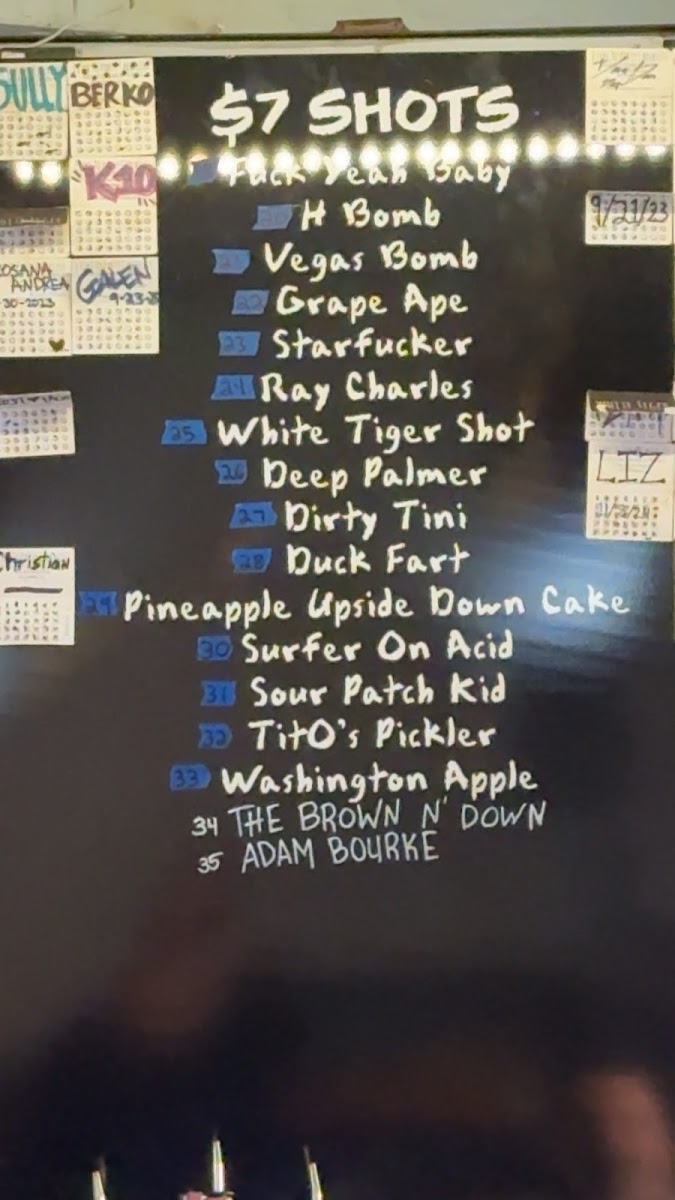 SULLY
BERKO
$7 SHOTS
K10
Fuck Yeah Baby
H Bomb
9/21/23
21 Vegas Bomb
GALEN
9-23-23
OSANA
ANDREA
30-2023
22 Grape Ape
23 Starfucker
24 Ray Charles
25 White Tiger Shot
26 Deep Palmer
LIZ
27 Dirty Tini
28 Duck Fart
Christian
29 Pineapple Upside Down Cake
30 Surfer On Acid
31 Sour Patch Kid
32 TitO's Pickler
33 Washington Apple
34 THE BROWN N' DOWN
35 ADAM BOURKE